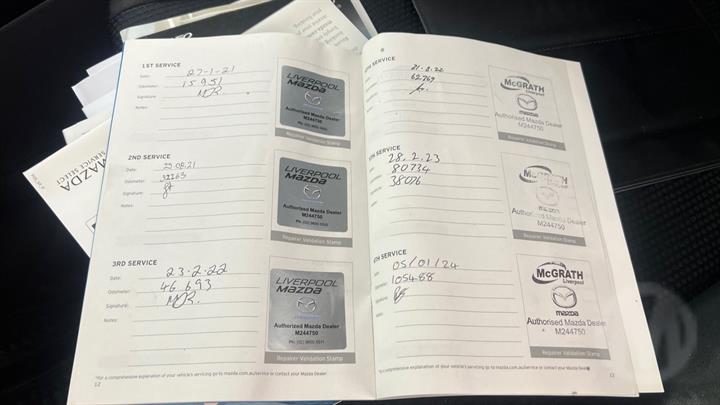 1ST SERVICE
Date: 27-1-21
Odometer: 15951
Signature:
Notes:
LIVERPOOL
mazda
Authorised Mazda Dealer
M244750
Repairer Validation Stamp
2ND SERVICE
Date: 25.08.21
Odometer:
Signature:
Notes:
LIVERPOOL
mazda
Authorised Mazda Dealer
M244750
Repairer Validation Stamp
3RD SERVICE
Date: 23-2-22
Odometer: 46 693
Signature:
Notes:
LIVERPOOL
mazda
Authorized Mazda Dealer
M244750
Repairer Validation Stamp
*For a comprehensive explanation of your vehicle's servicing go to mazda.com.au/service or contact your Mazda Dealer
12
4TH SERVICE
21-8-22
62,769
McGRATH
Liverpool
mazda
Authorised Mazda Dealer
M244750
Repairer Validation Stamp
5TH SERVICE
28.2.23
80734
38076
McGRATH
Authorised Mazda Dealer
M244750
Repairer Validation Stamp
6TH SERVICE
05/01/24
105488
McGRATH
Liverpool
mazda
Authorised Mazda Dealer
M244750
Repairer Validation Stamp
*For a comprehensive explanation of your vehicle's servicing go to mazda.com.au/service or contact your Mazda Dealer
13
MAZDA
SERVICE SELECT